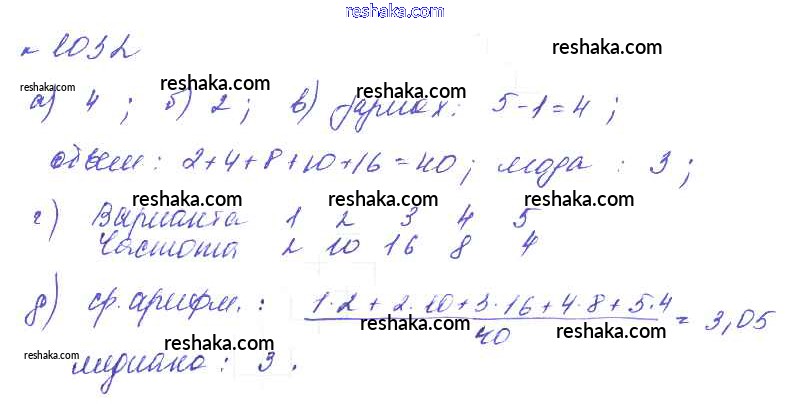 reshaka.com
reshaka.com
reshaka.com reshaka.com reshaka.com
№ 1032
а) 4 ; б) 2 ; в) размах : 5-1=4 ;
объем : 2+4+8+10+16=40 ; мода : 3 ;
reshaka.com reshaka.com reshaka.com
г) Варианта 1 2 3 4 5
Частота 2 10 16 8 4
д) ср. арифм. : (1·2 + 2·10 + 3·16 + 4·8 + 5·4)/40 = 3,05
reshaka.com reshaka.com
reshaka.com reshaka.com
медиана : 3 .